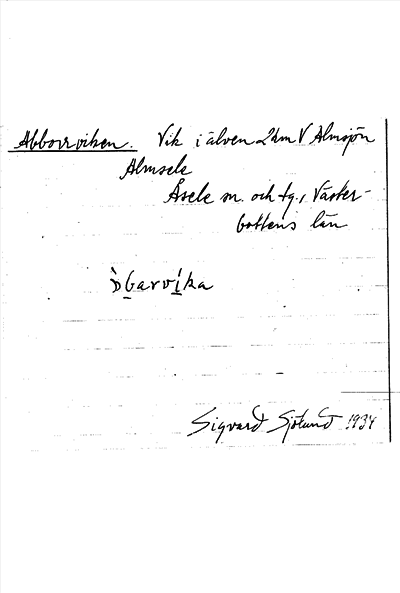 Abborrviken. Vik i älven 2 km V Almsjön
Almsele
Åsele sn. och tg., Väster-
bottens län
àbarvíka
Sigvard Sjölund 1934